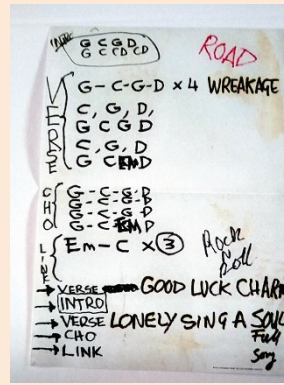 INTRO G C G D ROAD
G C CD CD
VERSE
G - C - G - D x 4 WREAKAGE
C, G, D,
G C G D
C, G, D
G C EMD
CHO
G - C - G - D
G - C - G - D
G - C - G - D
G - C - EM D
LINE
Em - C x 3 Rock n Roll
VERSE GOOD LUCK CHARM
INTRO
VERSE LONELY SING A SOUL
CHO Full
LINK Song